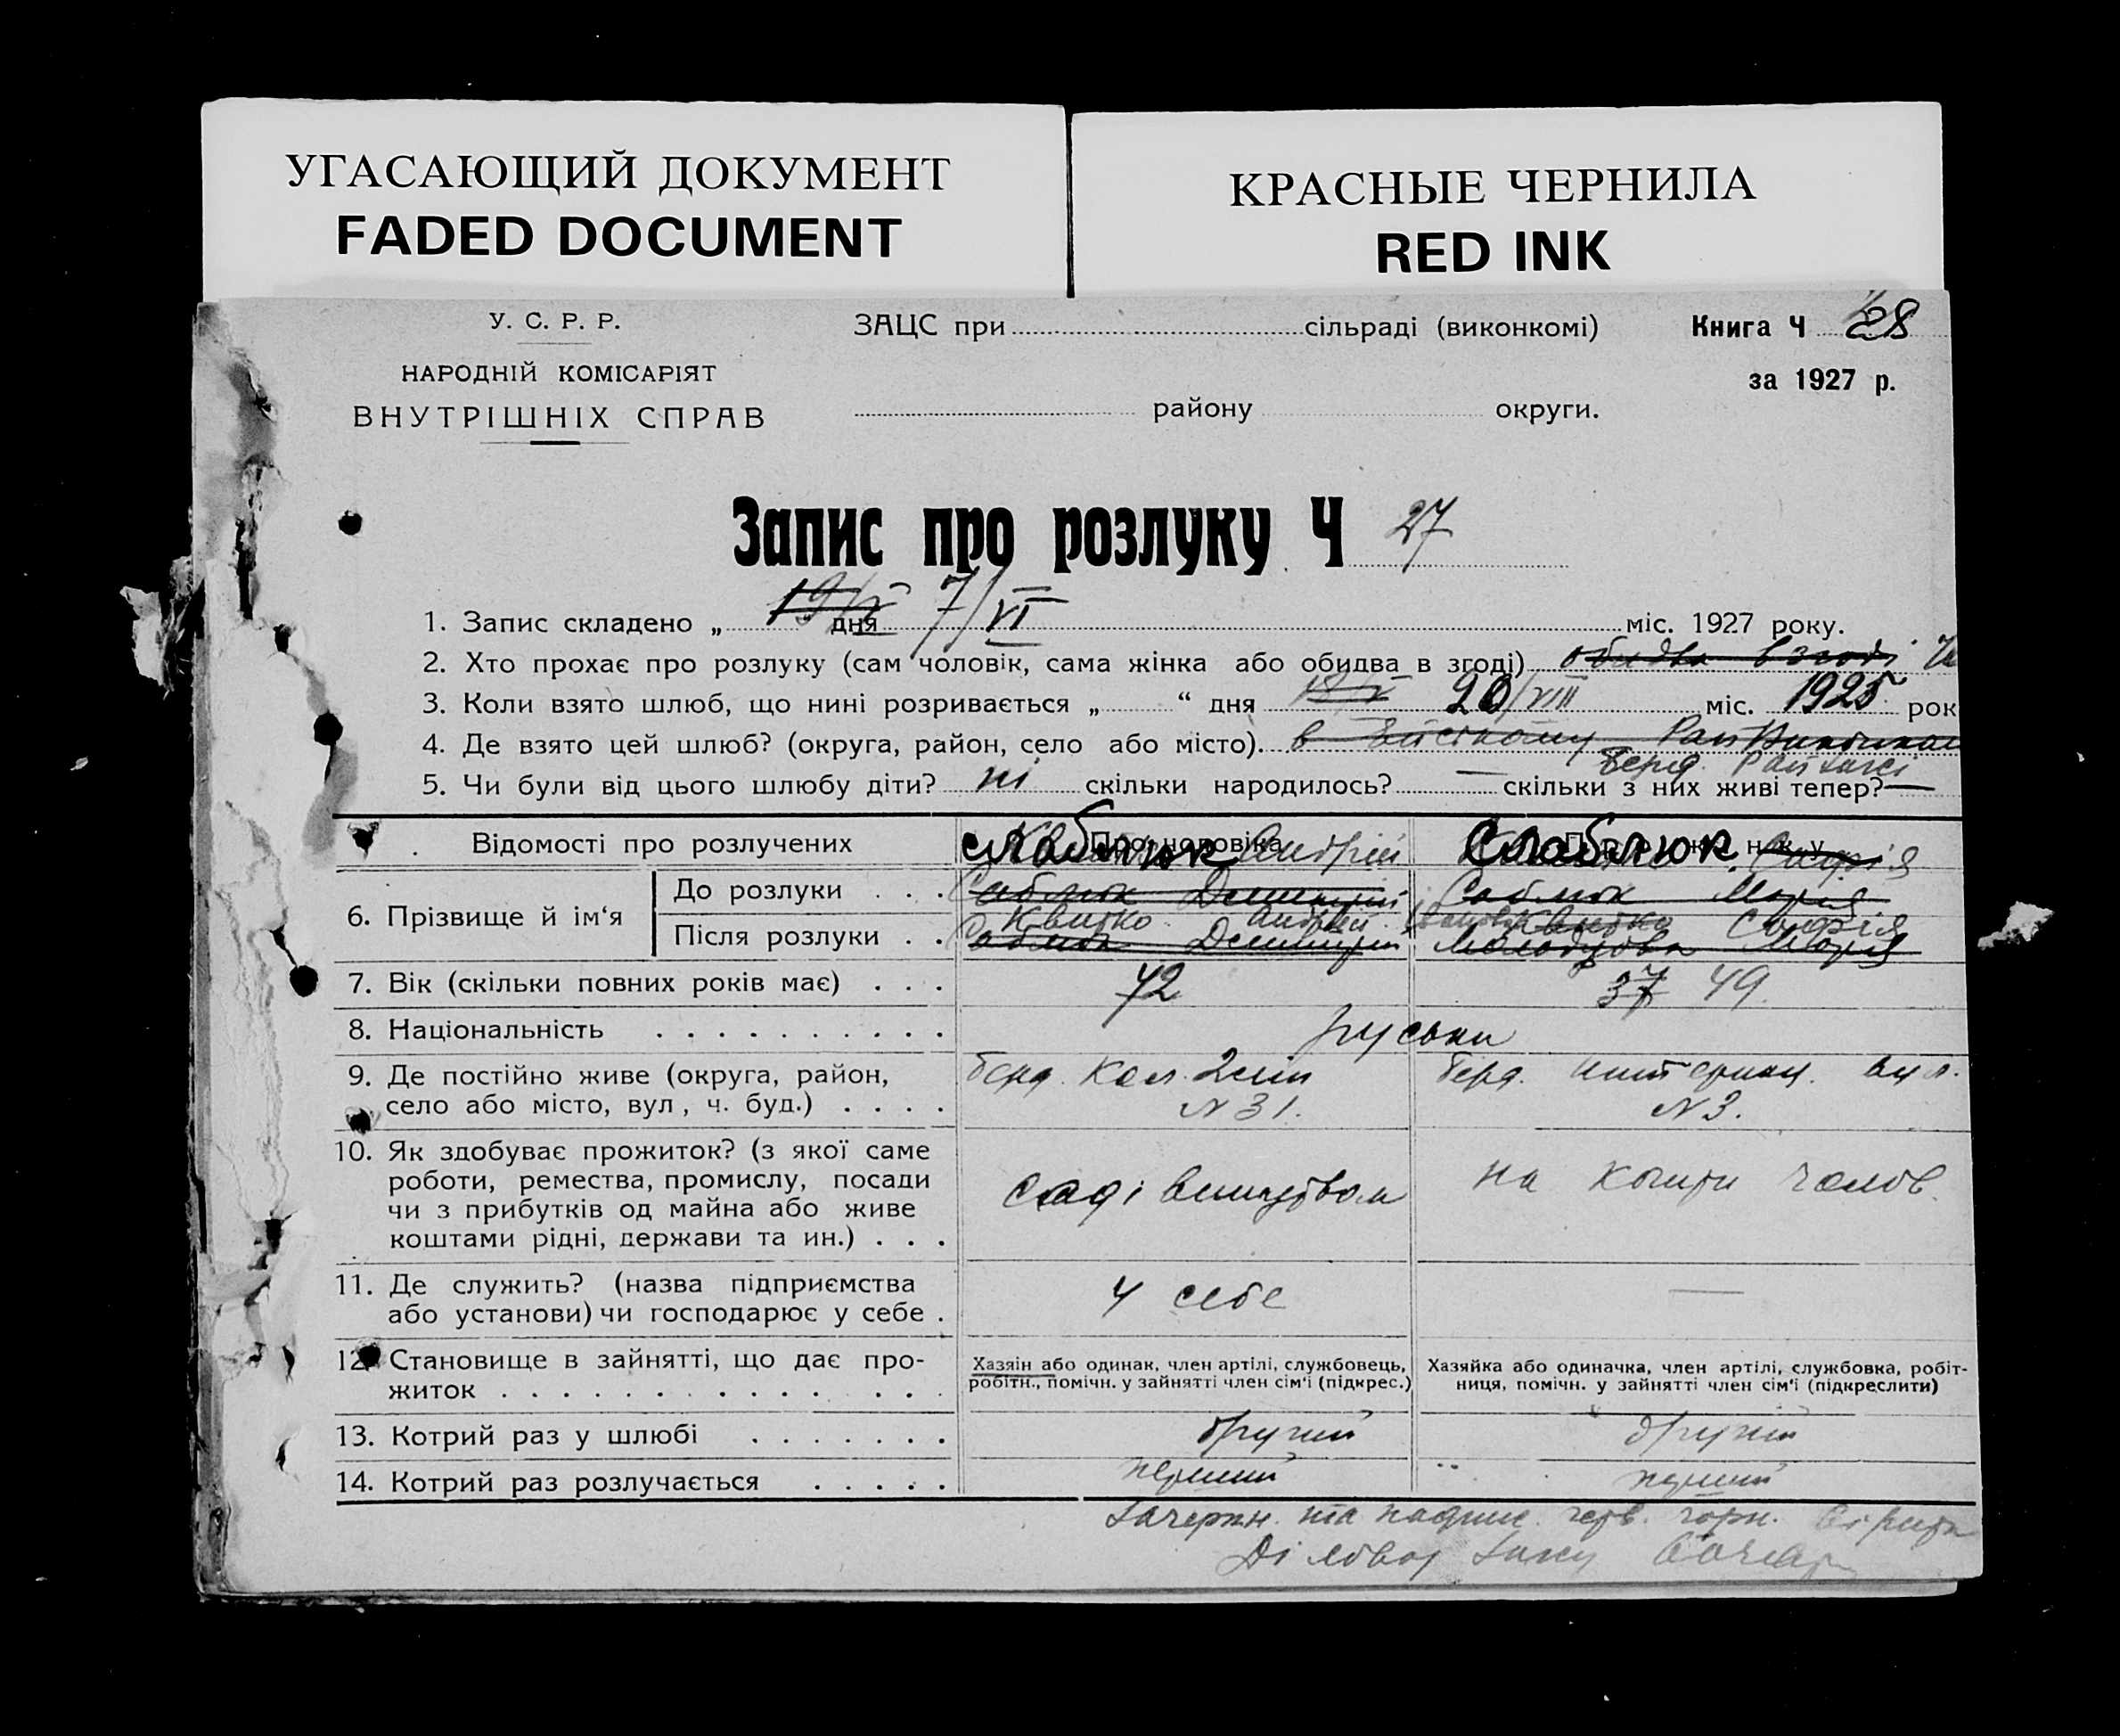 УГАСАЮЩИЙ ДОКУМЕНТ
FADED DOCUMENT
КРАСНЫЕ ЧЕРНИЛА
RED INK
У. С. Р. Р.
НАРОДНІЙ КОМІСАРІЯТ
ВНУТРІШНІХ СПРАВ
ЗАЦС при сільраді (виконкомі)
району округи.
Книга Ч 28
за 1927 р.
Запис про розлуку Ч 27
1. Запис складено „ дня 7/VI міс. 1927 року.
2. Хто прохає про розлуку (сам чоловік, сама жінка або обидва в згоді) обидва в згоді
3. Коли взято шлюб, що нині розривається „ “ дня 20/VIII міс. 1925 рок
4. Де взято цей шлюб? (округа, район, село або місто). в
Берд.
5. Чи були від цього шлюбу діти? ні скільки народилось? — скільки з них живі тепер? —
Відомості про розлучених Про чоловіка Слаблюк Андрій Слаблюк Софія
6. Прізвище й ім‘я
До розлуки . . . Саблюк Саблюк Марія
Після розлуки . . Квитко Андрій Квитко Софія
Саблюк Марія
7. Вік (скільки повних років має) . . . 42 37 49.
8. Національність . . . . . . . . . . руськи
9. Де постійно живе (округа, район,
село або місто, вул, ч. буд.) . . . .
Берд. Кол.
N 31.
Берд. вул.
N 3.
10. Як здобуває прожиток? (з якої саме
роботи, ремества, промислу, посади
чи з прибутків од майна або живе
коштами рідні, держави та ин.) . . .
садівництвом
на кошти чолов.
11. Де служить? (назва підприємства
або установи) чи господарює у себе .
у себе
—
12. Становище в зайнятті, що дає про-
житок . . . . . . . . . . . . . . .
Хазяін або одинак, член артілі, службовець,
робітн., помічн. у зайнятті член сім‘і (підкрес.)
Хазяйка або одиначка, член артілі, службовка, робіт-
ниця, помічн. у зайнятті член сім‘і (підкреслити)
13. Котрий раз у шлюбі . . . . . . . другий другий
14. Котрий раз розлучається . . . . . перший перший
Закресл. та надпис. черв. чорн.
Діловод